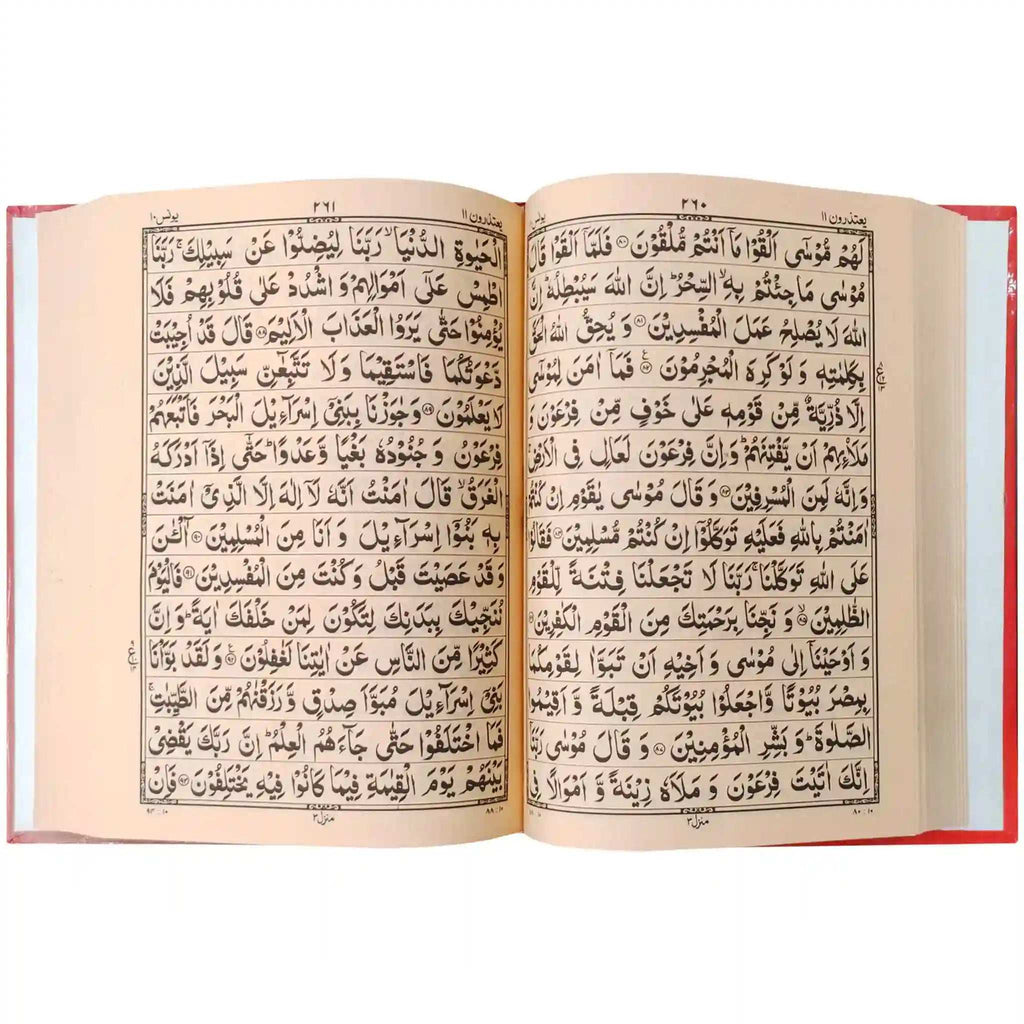 يعتذرون ١١
٢٦٠
يونس ١٠
لَهُمْ مُّوْسٰۤى اَلْقُوْا مَاۤ اَنْتُمْ مُّلْقُوْنَ ۝٨٠ فَلَمَّاۤ اَلْقَوْا قَالَ
مُوْسٰى مَا جِئْتُمْ بِهِ ۙ السِّحْرُ ؕ اِنَّ اللّٰهَ سَيُبْطِلُهٗ ؕ اِنَّ
اللّٰهَ لَا يُصْلِحُ عَمَلَ الْمُفْسِدِيْنَ ۝٨١ وَ يُحِقُّ اللّٰهُ الْحَقَّ
بِكَلِمٰتِهٖ وَ لَوْ كَرِهَ الْمُجْرِمُوْنَ ۝٨٢ فَمَاۤ اٰمَنَ لِمُوْسٰۤى
اِلَّا ذُرِّيَّةٌ مِّنْ قَوْمِهٖ عَلٰى خَوْفٍ مِّنْ فِرْعَوْنَ وَ
مَلَا۠ئِهِمْ اَنْ يَّفْتِنَهُمْ ؕ وَ اِنَّ فِرْعَوْنَ لَعَالٍ فِى الْاَرْضِ ۚ
وَ اِنَّهٗ لَمِنَ الْمُسْرِفِيْنَ ۝٨٣ وَ قَالَ مُوْسٰى يٰقَوْمِ اِنْ كُنْتُمْ
اٰمَنْتُمْ بِاللّٰهِ فَعَلَيْهِ تَوَكَّلُوْۤا اِنْ كُنْتُمْ مُّسْلِمِيْنَ ۝٨٤ فَقَالُوْا
عَلَى اللّٰهِ تَوَكَّلْنَا ۚ رَبَّنَا لَا تَجْعَلْنَا فِتْنَةً لِّلْقَوْمِ
الظّٰلِمِيْنَ ۝٨٥ۙ وَ نَجِّنَا بِرَحْمَتِكَ مِنَ الْقَوْمِ الْكٰفِرِيْنَ ۝٨٦
وَ اَوْحَيْنَاۤ اِلٰى مُوْسٰى وَ اَخِيْهِ اَنْ تَبَوَّاٰ لِقَوْمِكُمَا
بِمِصْرَ بُيُوْتًا وَّ اجْعَلُوْا بُيُوْتَكُمْ قِبْلَةً وَّ اَقِيْمُوا
الصَّلٰوةَ ؕ وَ بَشِّرِ الْمُؤْمِنِيْنَ ۝٨٧ وَ قَالَ مُوْسٰى رَبَّنَاۤ
اِنَّكَ اٰتَيْتَ فِرْعَوْنَ وَ مَلَاَهٗ زِيْنَةً وَّ اَمْوَالًا فِى
٨٠ : ١٠
منزل ٣
يعتذرون ١١
٢٦١
يونس ١٠
الْحَيٰوةِ الدُّنْيَا ۙ رَبَّنَا لِيُضِلُّوْا عَنْ سَبِيْلِكَ ۚ رَبَّنَا
اطْمِسْ عَلٰۤى اَمْوَالِهِمْ وَ اشْدُدْ عَلٰى قُلُوْبِهِمْ فَلَا
يُؤْمِنُوْا حَتّٰى يَرَوُا الْعَذَابَ الْاَلِيْمَ ۝٨٨ قَالَ قَدْ اُجِيْبَتْ
دَّعْوَتُكُمَا فَاسْتَقِيْمَا وَ لَا تَتَّبِعٰٓنِّ سَبِيْلَ الَّذِيْنَ
لَا يَعْلَمُوْنَ ۝٨٩ وَ جٰوَزْنَا بِبَنِىْۤ اِسْرَآءِيْلَ الْبَحْرَ فَاَتْبَعَهُمْ
فِرْعَوْنُ وَ جُنُوْدُهٗ بَغْيًا وَّ عَدْوًا ؕ حَتّٰۤى اِذَاۤ اَدْرَكَهُ
الْغَرَقُ ۙ قَالَ اٰمَنْتُ اَنَّهٗ لَاۤ اِلٰهَ اِلَّا الَّذِىْۤ اٰمَنَتْ
بِهٖ بَنُوْۤا اِسْرَآءِيْلَ وَ اَنَا مِنَ الْمُسْلِمِيْنَ ۝٩٠ آٰلْـٰٔنَ
وَ قَدْ عَصَيْتَ قَبْلُ وَ كُنْتَ مِنَ الْمُفْسِدِيْنَ ۝٩١ فَالْيَوْمَ
نُنَجِّيْكَ بِبَدَنِكَ لِتَكُوْنَ لِمَنْ خَلْفَكَ اٰيَةً ؕ وَ اِنَّ
كَثِيْرًا مِّنَ النَّاسِ عَنْ اٰيٰتِنَا لَغٰفِلُوْنَ ۝٩٢ وَ لَقَدْ بَوَّاْنَا
بَنِىْۤ اِسْرَآءِيْلَ مُبَوَّاَ صِدْقٍ وَّ رَزَقْنٰهُمْ مِّنَ الطَّيِّبٰتِ ۚ
فَمَا اخْتَلَفُوْا حَتّٰى جَآءَهُمُ الْعِلْمُ ؕ اِنَّ رَبَّكَ يَقْضِىْ
بَيْنَهُمْ يَوْمَ الْقِيٰمَةِ فِيْمَا كَانُوْا فِيْهِ يَخْتَلِفُوْنَ ۝٩٣ فَاِنْ
٨٨ : ١٠
منزل ٣
٩٣ : ١٠